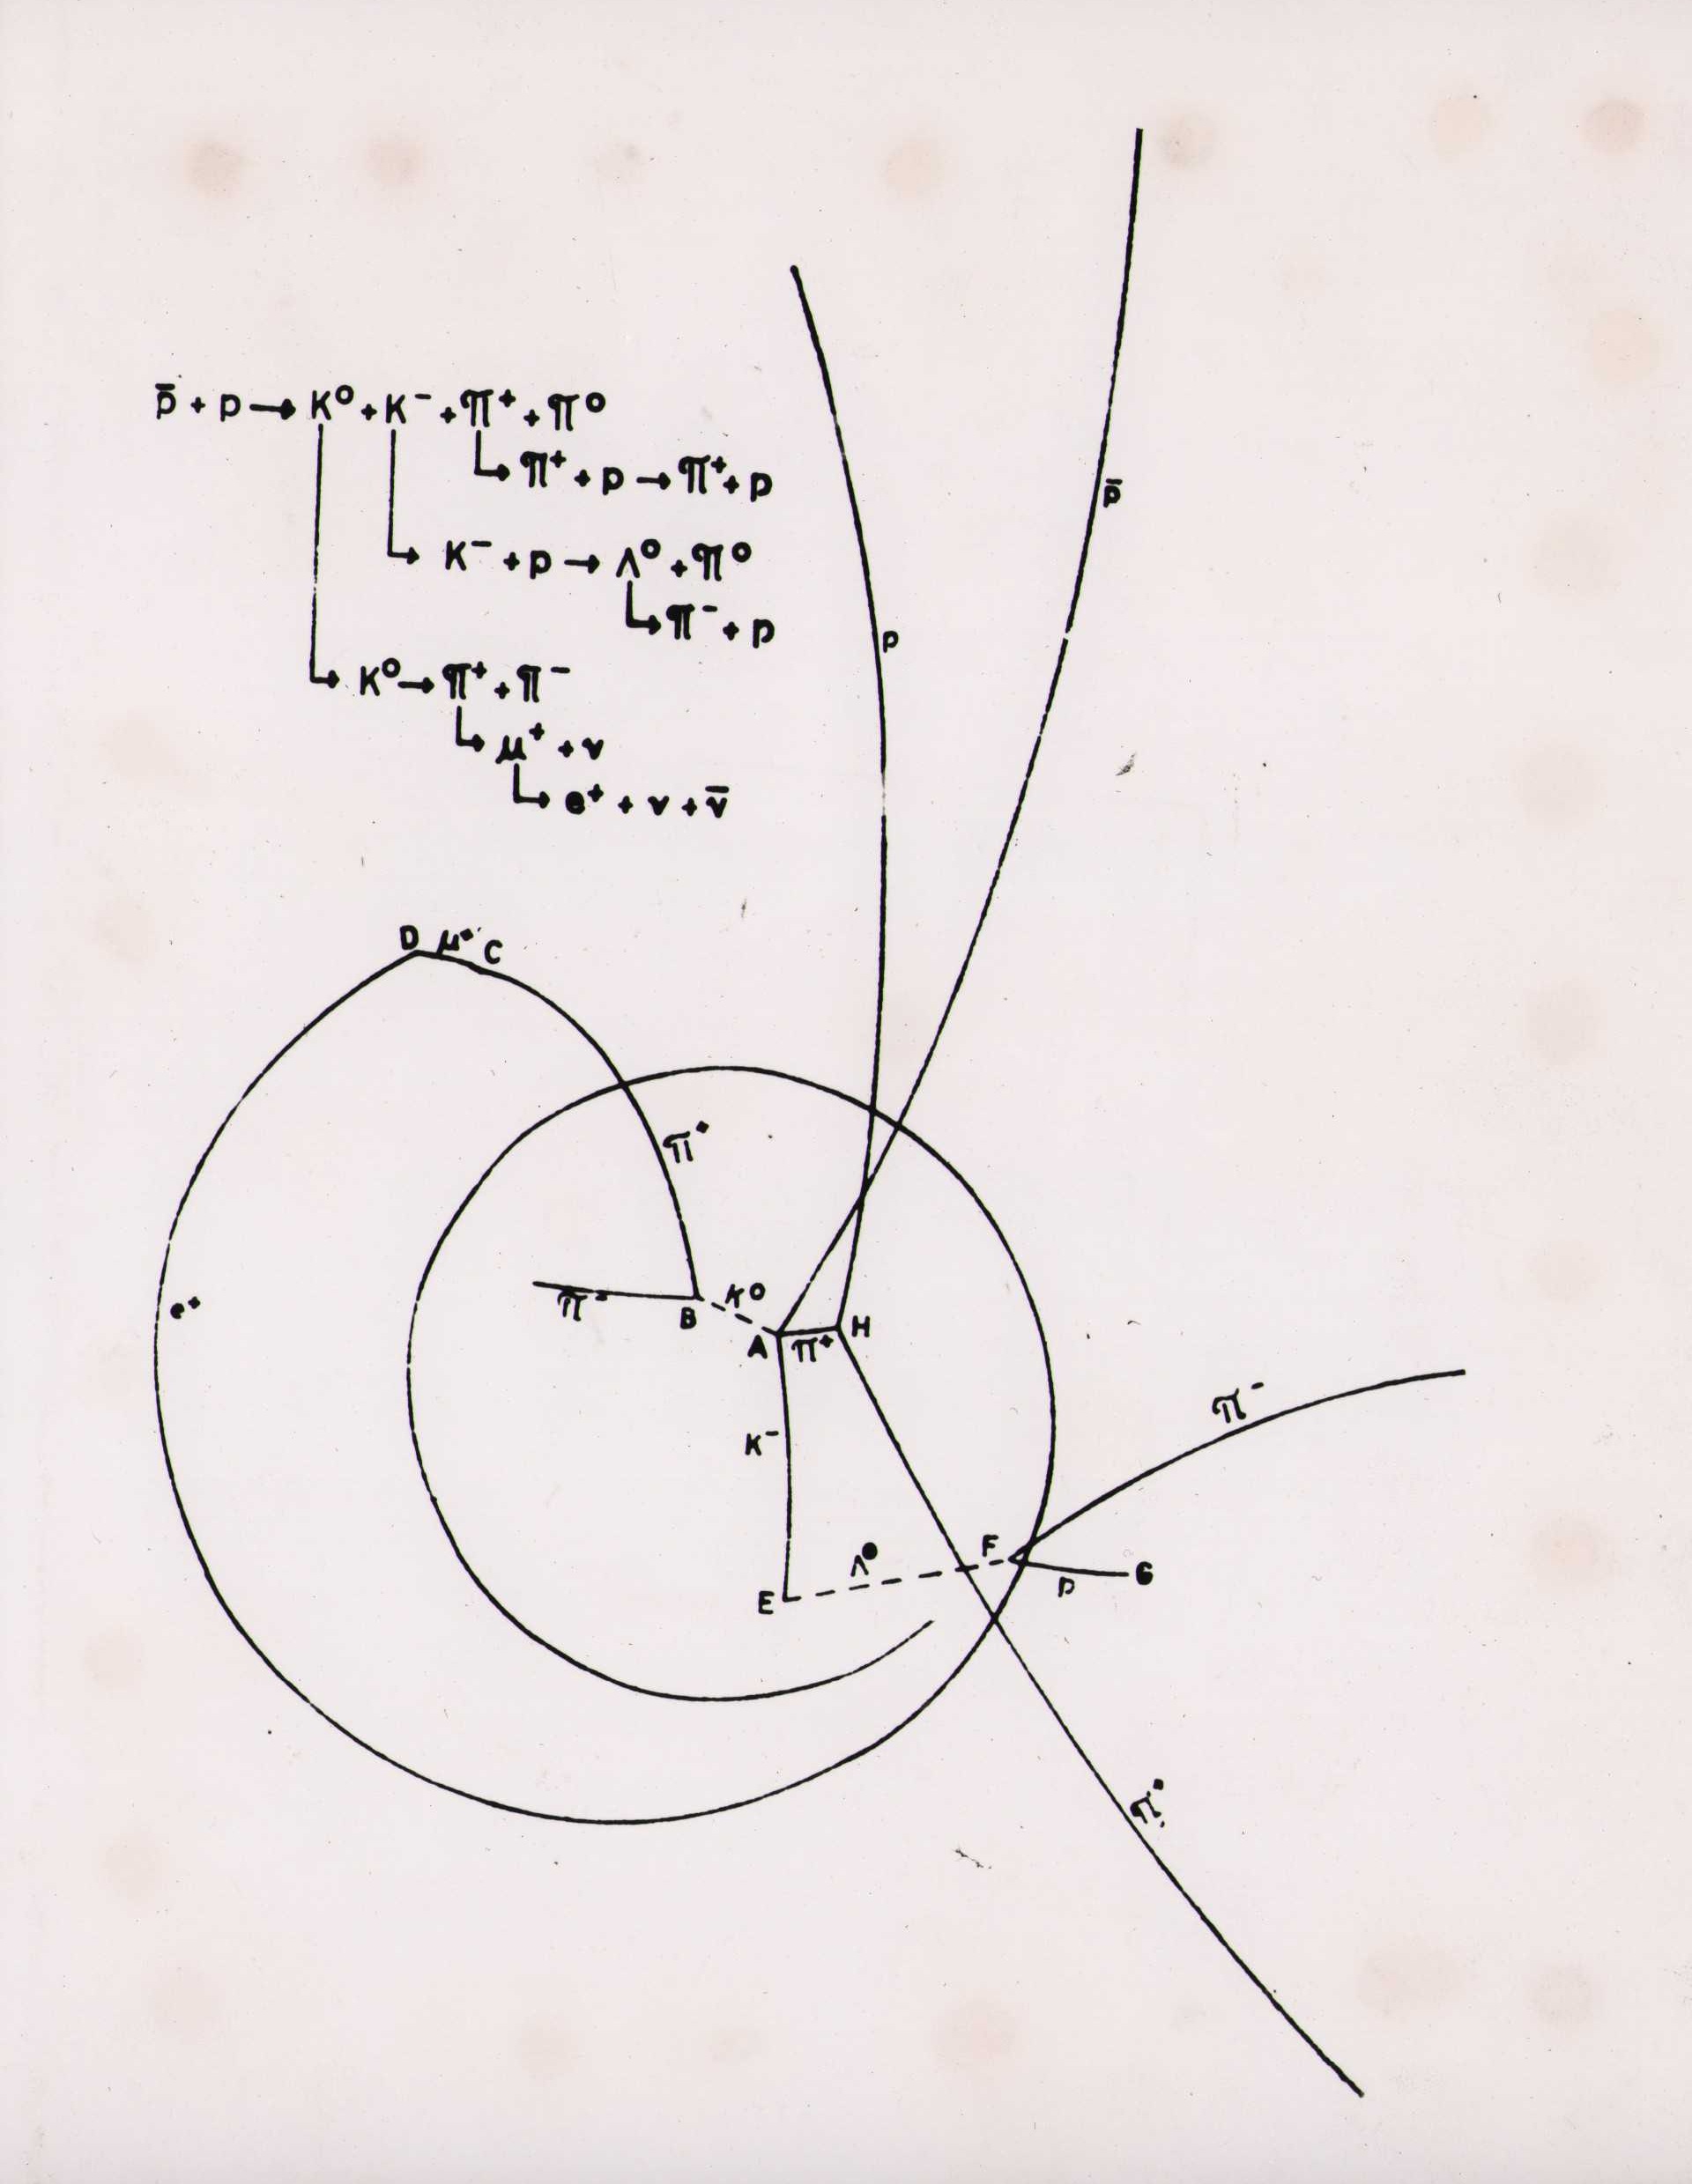 p̄ + p → K⁰ + K⁻ + π⁺ + π⁰
π⁺ + p → π⁺ + p
K⁻ + p → Λ⁰ + π⁰
π⁻ + p
K⁰ → π⁺ + π⁻
μ⁺ + ν
e⁺ + ν + ν̄
p̄
p
D μ⁺ C
π⁺
e⁺
π⁻
B
K⁰
A
π⁺
H
K⁻
π⁻
E
Λ⁰
F
p
G